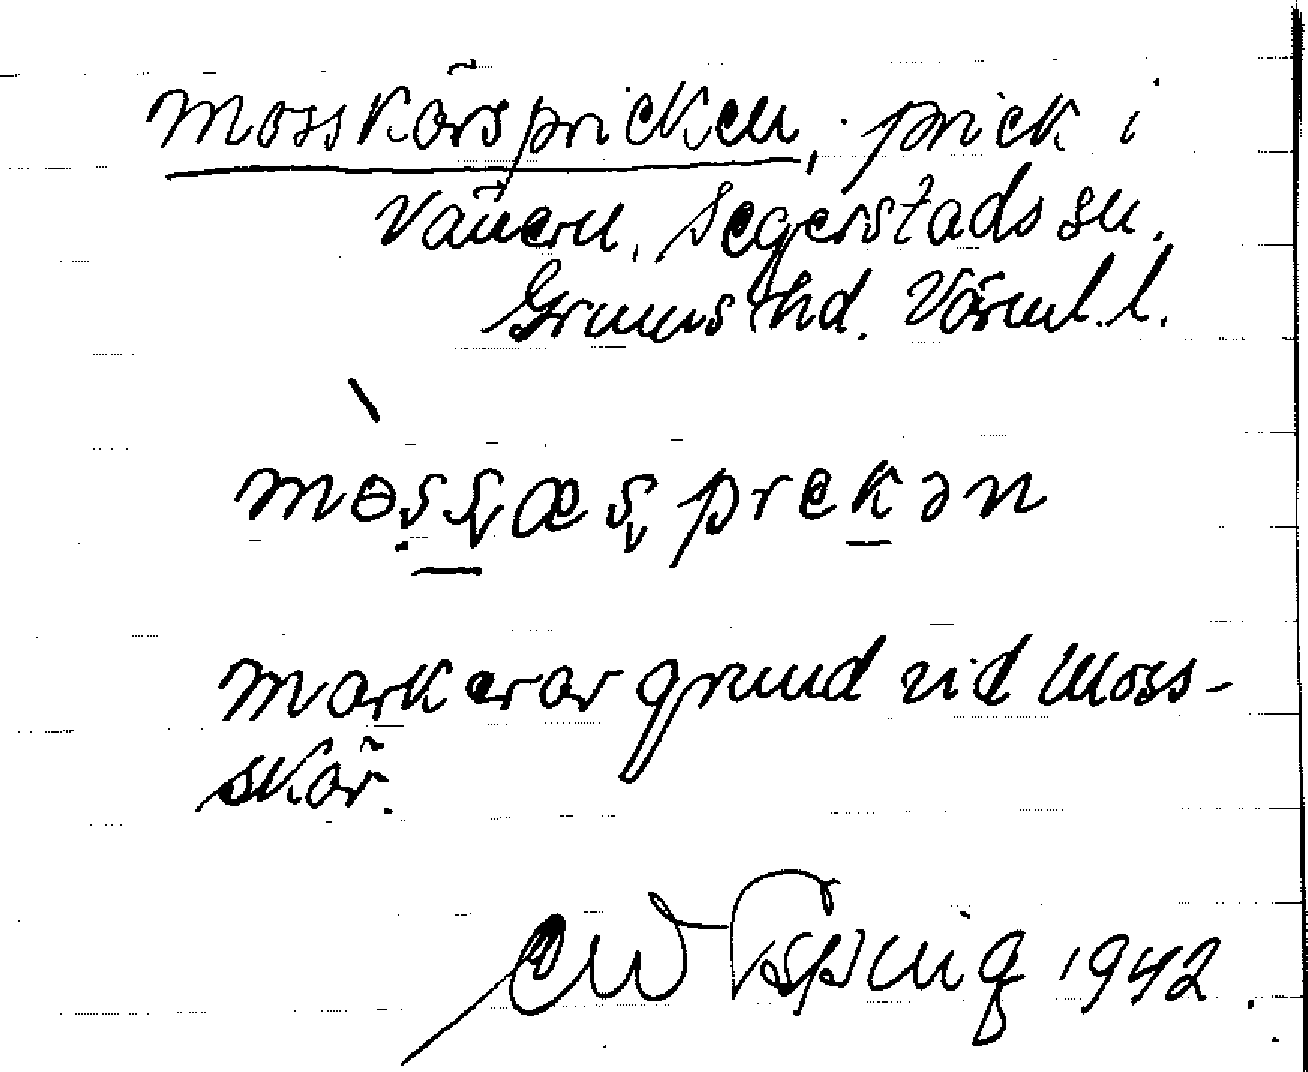 Mosskärspricken, prick i
Vänern, Segerstads sn.
Grums hd. Värml. l.
mɵssæsprekən
Markerar grund vid Moss-
skär.
1942.